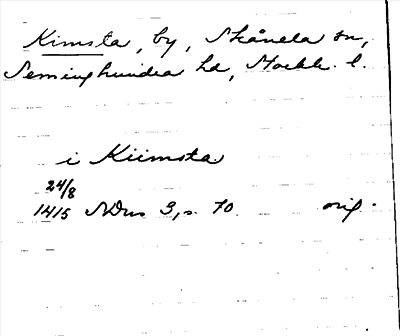 Kimsta, by, Skånela sn,
Seminghundra hd, Stockh. l.
i Kiimsta
24/8
1415 SDns 3, s. 70 orig.